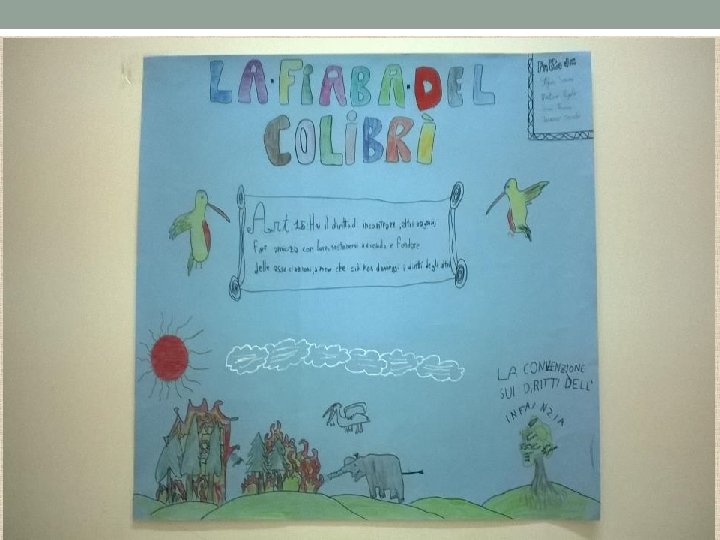 LA·FIABA·DEL
COLIBRÌ
Art 15 Hai il diritto d incontrare altri ragazzi
fare amicizia con loro e fondare
delle associazioni, a meno che ciò non danneggi i diritti degli altri
LA CONVENZIONE
SUI DIRITTI DELL'
INFAINZIA